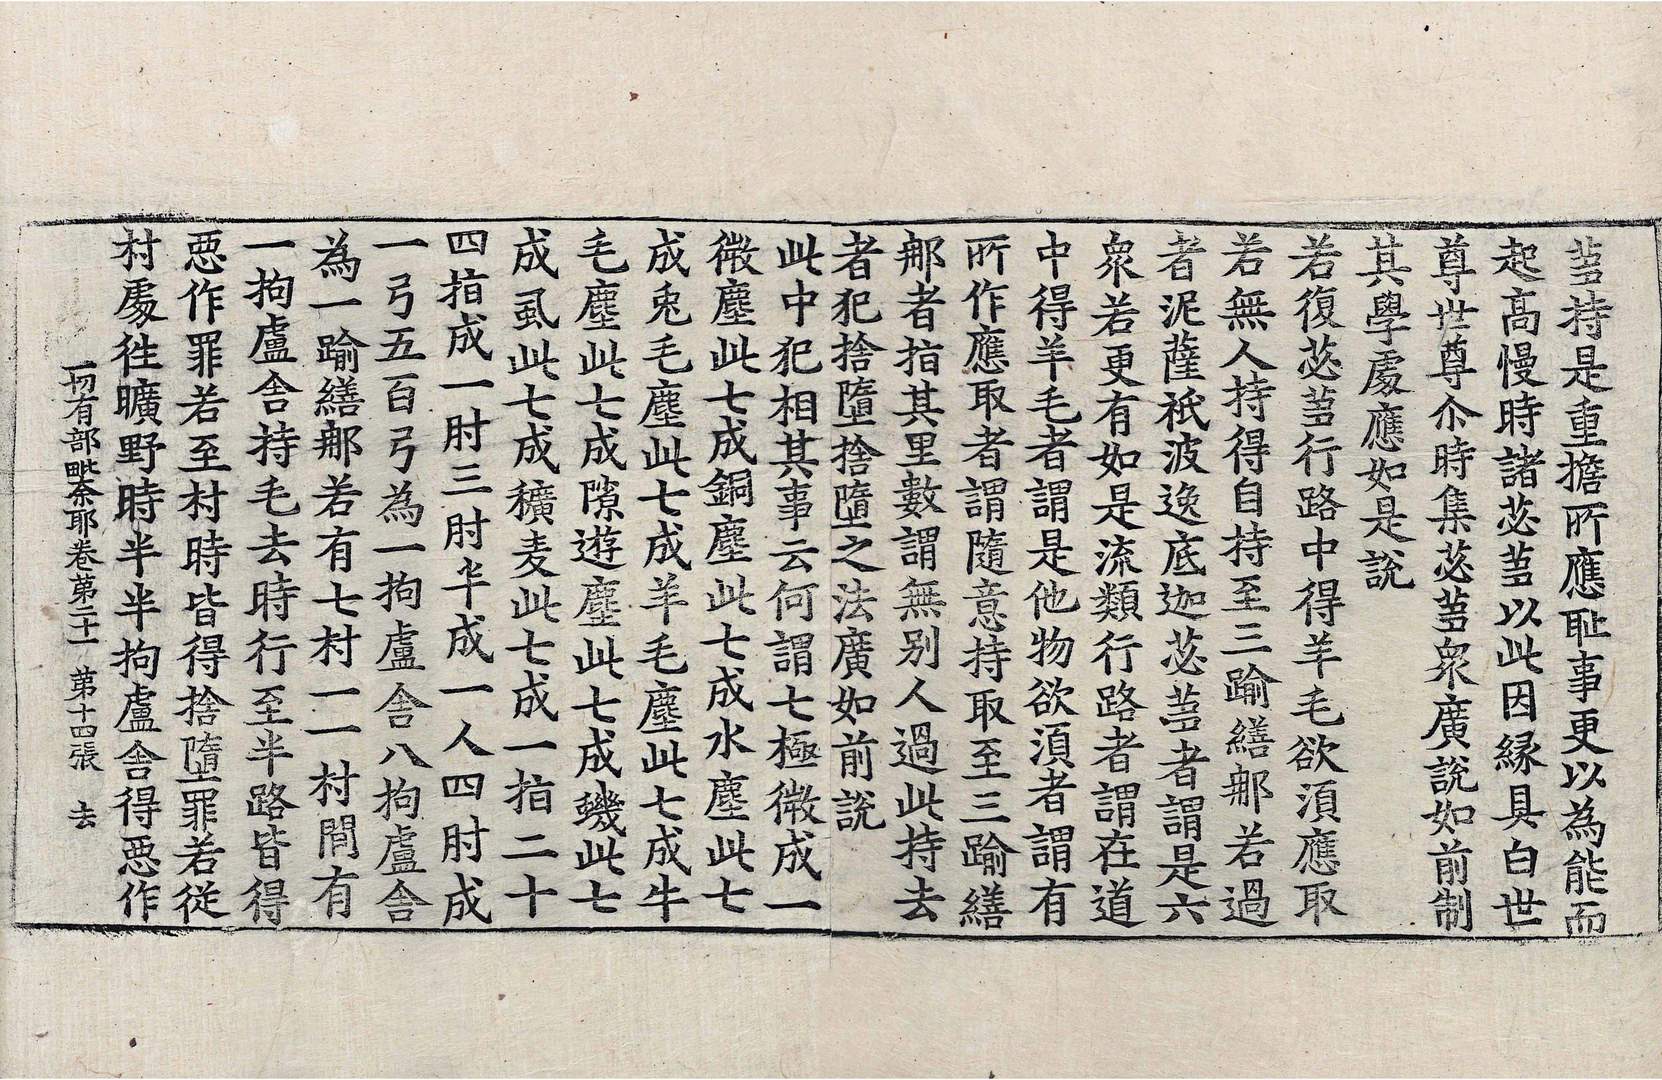 蒭持是重擔所應耻事更以為能而
起高慢時諸苾蒭以此因緣具白世
尊世尊尒時集苾蒭衆廣說如前制
其學處應如是說
若復苾蒭行路中得羊毛欲湏應取
若無人持得自持至三踰繕那若過
者泥薩祇波逸底迦苾蒭者謂是六
衆若更有如是流類行路者謂在道
中得羊毛者謂是他物欲湏者謂有
所作應取者謂隨意持取至三踰繕
那者指其里數謂無別人過此持去
者犯捨墮捨墮之法廣如前說
此中犯相其事云何謂七極微成一
微塵此七成銅塵此七成水塵此七
成兎毛塵此七成羊毛塵此七成牛
毛塵此七成隙遊塵此七成蟣此七
成虱此七成穬麦此七成一指二十
四指成一肘三肘半成一人四肘成
一弓五百弓為一拘盧舍八拘盧舍
為一踰繕那若有七村一一村間有
一拘盧舍持毛去時行至半路皆得
惡作罪若至村時皆得捨墮罪若從
村處徃曠野時半半拘盧舍得惡作
一切有部毗奈耶卷第二十一 第十四張 去